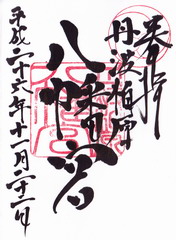 奉拝
丹波柏原
八幡宮
平成二十六年十一月二十二日